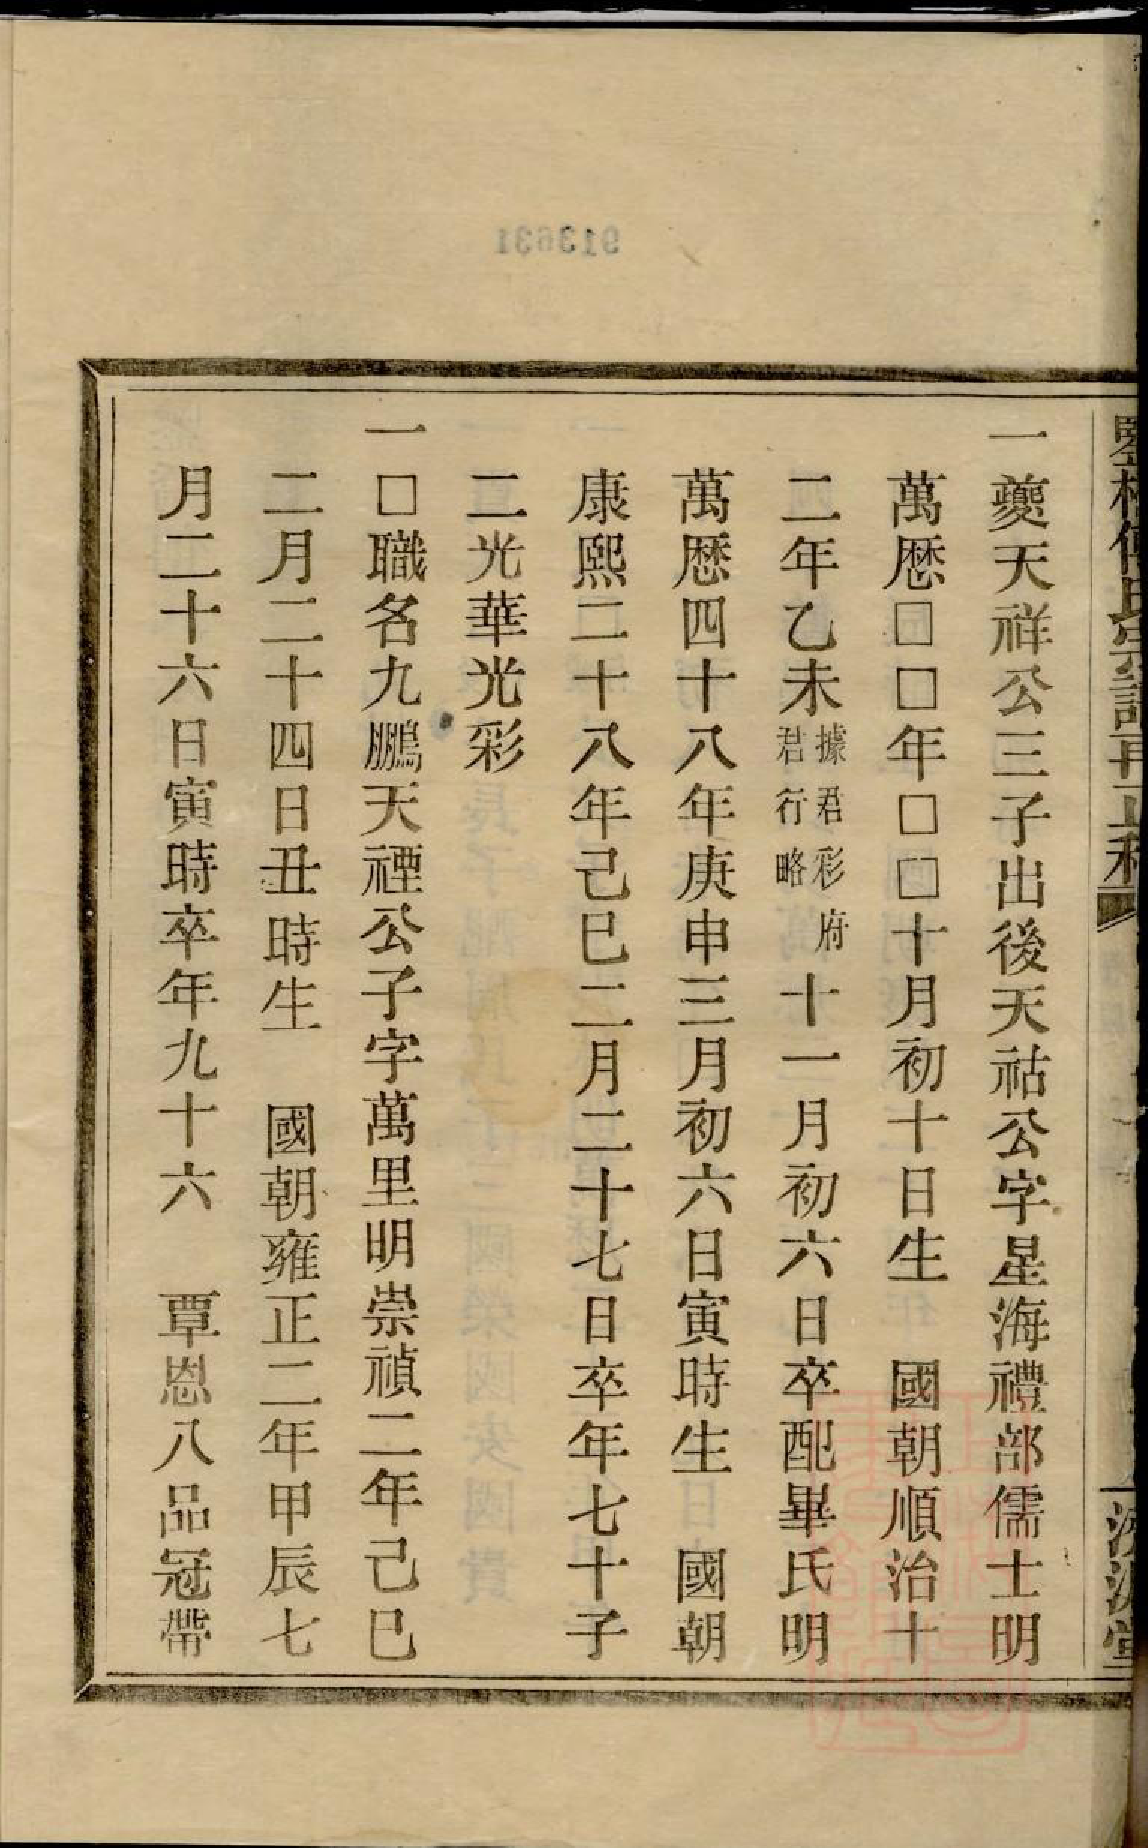 一夔天祥公三子出後天祜公字星海禮部儒士明
萬厯□□年□□十月初十日生　國朝順治十
二年乙未據君彩府君行略十一月初六日卒配畢氏明
萬厯四十八年庚申三月初六日寅時生　國朝
康熙二十八年己巳二月二十七日卒年七十子
二光華光彩
一□職名九鵬天禋公子字萬里明崇禎二年己巳
二月二十四日丑時生　國朝雍正二年甲辰七
月二十六日寅時卒年九十六　覃恩八品冠帶
913631